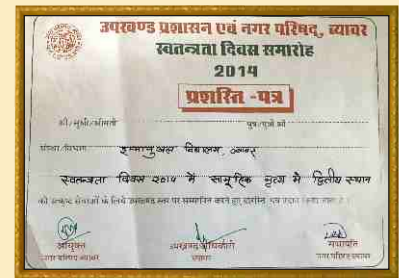 उपखण्ड प्रशासन एवं नगर परिषद्, ब्यावर
स्वतन्त्रता दिवस समारोह
2014
प्रशस्ति-पत्र
श्री/सुश्री/श्रीमती पुत्र/पुत्री श्री
संस्था/विभाग इम्मानुएल विद्यालय, ब्यावर
स्वतन्त्रता दिवस २०१४ में सामूहिक नृत्य में द्वितीय स्थान
की उत्कृष्ट सेवाओं के लिये उपखण्ड स्तर पर सम्मानित करते हुए प्रशस्ति पत्र प्रदान किया जाता है।
आयुक्त उपखण्ड अधिकारी सभापति
नगर परिषद ब्यावर ब्यावर नगर परिषद ब्यावर